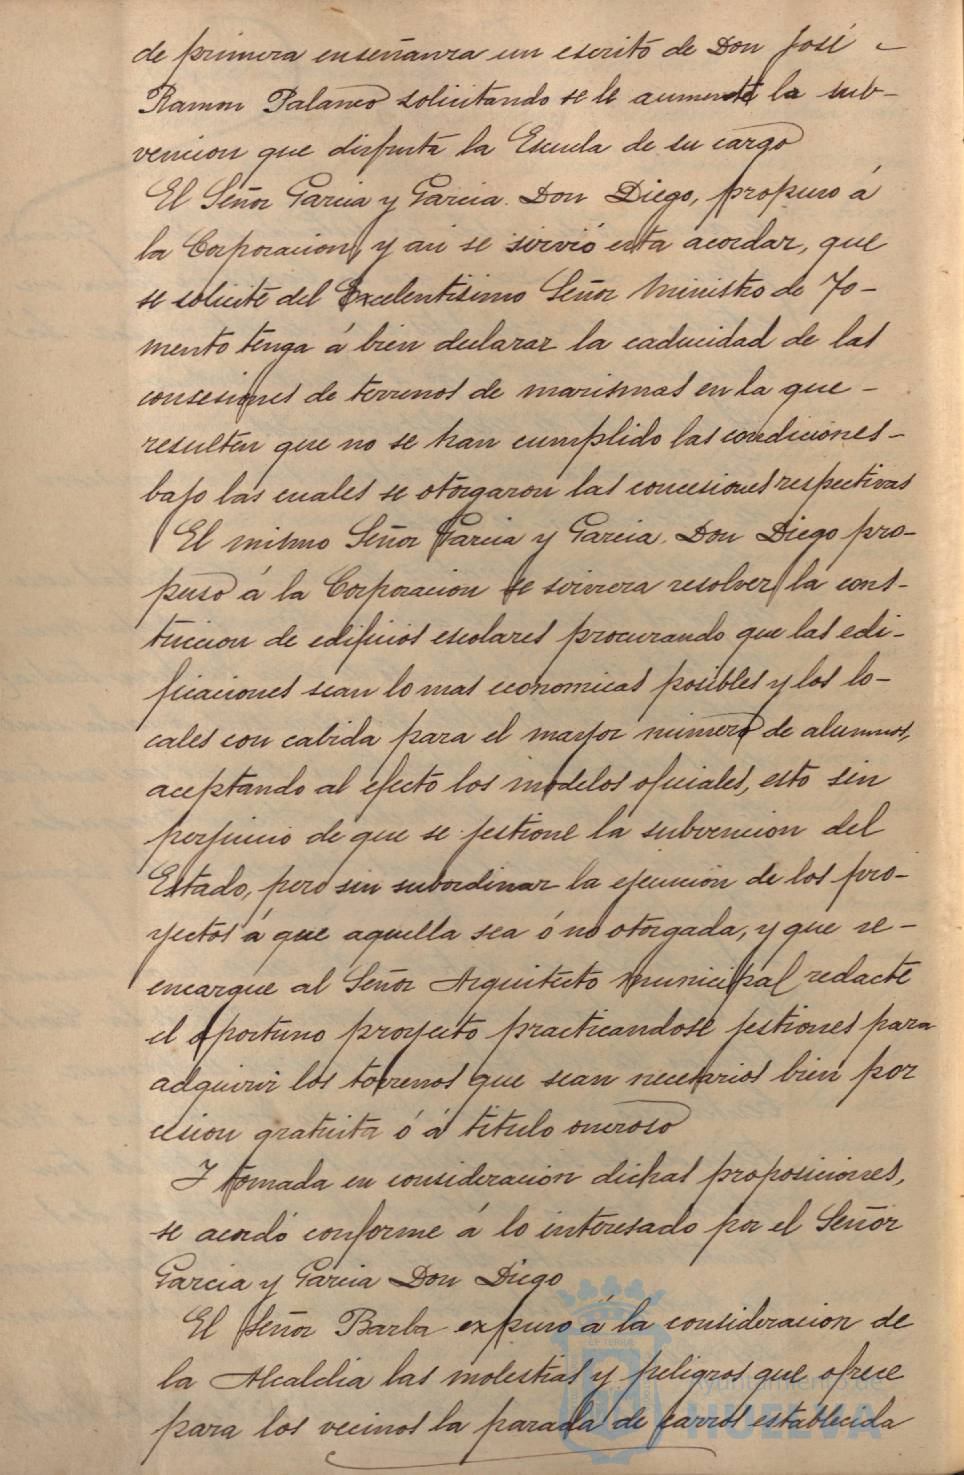 de primera enseñanza un escrito de Don José
Ramon Palanco solicitando se le aumente la sub-
vencion que disfruta la Escuela de su cargo
El Señor Garcia y Garcia. Don Diego, propuso á
la Corporacion, y asi se sirvió esta acordar, que
se solicite del Excelentisimo Señor Ministro de Fo-
mento tenga á bien declarar la caducidad de las
consesiones de terrenos de marismas en la que -
resulten que no se han cumplido las condiciones -
bajo las cuales se otorgaron las concesiones respectivas
El mismo Señor Garcia y Garcia. Don Diego pro-
puso á la Corporacion se sirviera resolver la cons-
truccion de edificios escolares procurando que las edi-
ficaciones sean lo mas economicas posibles y los lo-
cales con cabida para el mayor número de alumnos,
aceptando al efecto los modelos oficiales, esto sin
perjuicio de que se jestione la subvencion del
Estado, pero sin subordinar la ejecución de los pro-
yectos á que aquella sea ó no otorgada, y que se -
encargue al Señor Arquitecto municipal redacte
el oportuno proyecto practicandose jestiones para
adquirir los terrenos que sean necesarios bien por
cesion gratuita ó á titulo oneroso
Y tomada en consideracion dichas proposiciones,
se acordó conforme á lo interesado por el Señor
Garcia y Garcia Don Diego
El Señor Barba expuso á la consideracion de
la Alcaldia las molestias y peligros que ofrece
para los vecinos la parada de carros establecida
Ayuntamiento de
HUELVA